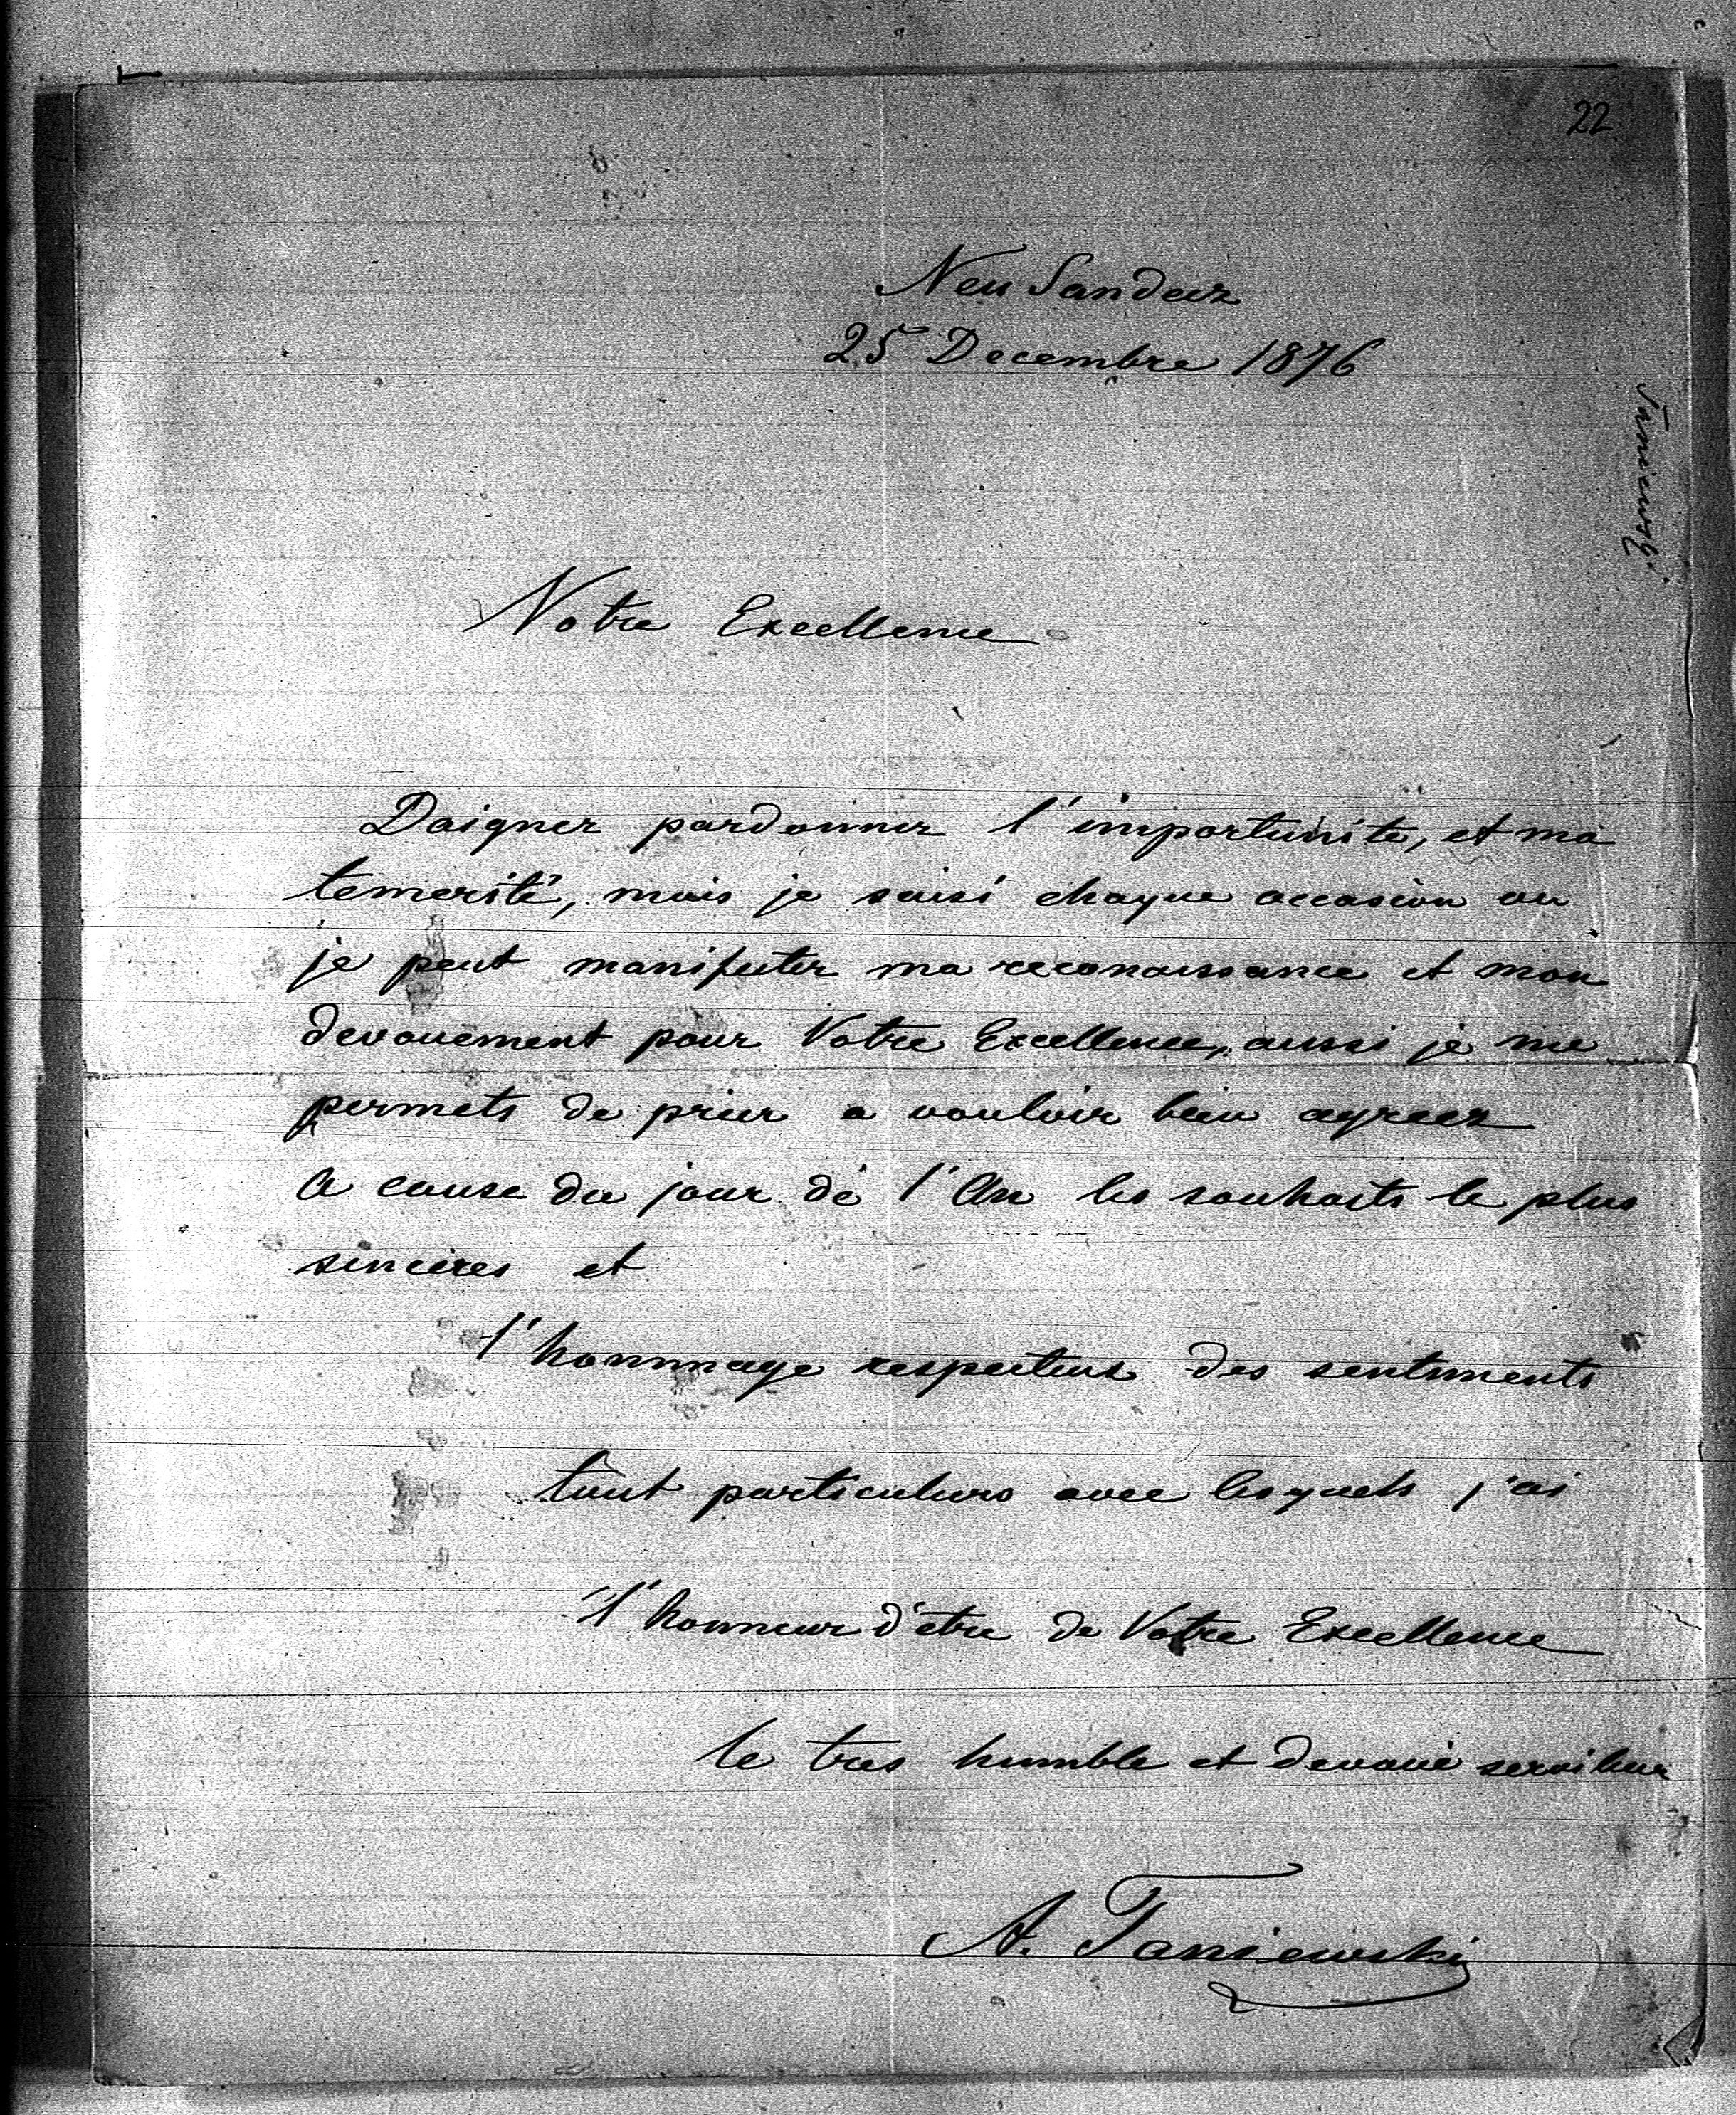 22
Neu Sandec
25 Decembre 1876
Taniewski
Votre Excellence
Daigner pardonner l'importunite, et ma
temerité, mais je saisi chaque occasion ou
je peut manifester ma reconaissance et mon
devouement pour Votre Excellence, aussi je me
permets de prier a vouloir bien agreer
a cause du jour de l'An les souhaits le plus
sinceres et
l'hommage respecteux des sentiments
tout particuliers avec lesquels j'ai
l'honneur d'etre de Votre Excellence
le tres humble et devoué serviteur
A. Taniewski